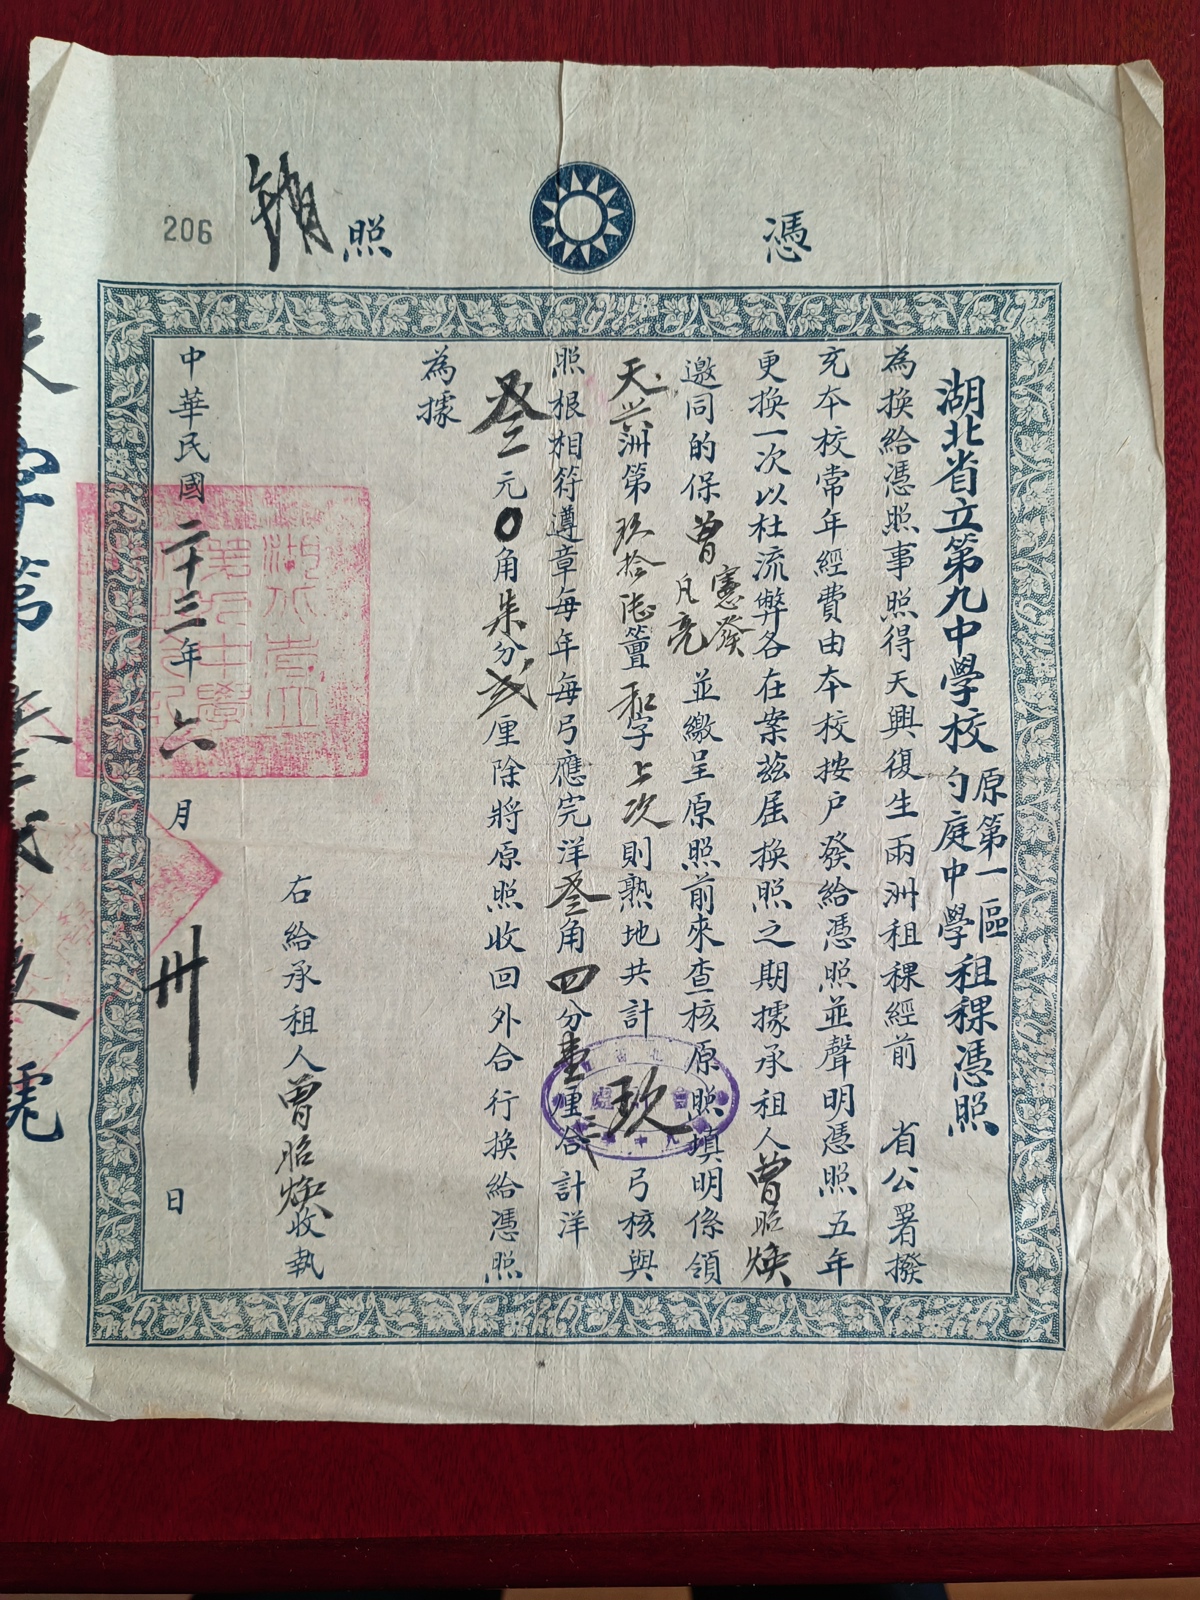 憑 照
206
湖北省立第九中學校原第一區勺庭中學租稞憑照
為換給憑照事照得天興復生兩洲租稞經前 省公署撥
充本校常年經費由本校按户發給憑照並聲明憑照五年
更換一次以杜流弊各在案茲屆換照之期據承租人曾昭煥
邀同的保曾憲發月亮並繳呈原照前來查核原照填明係領
天興洲第玖拾陸籄和字上次則熟地共計玖弓核與
照根相符遵章每年每弓應完洋叁角四分壹厘三合計洋
叁元0角柒分弍厘除將原照收回外合行換給憑照
為據
右給承租人曾昭煥收執
中華民國二十三年六月卅日
天字第
號